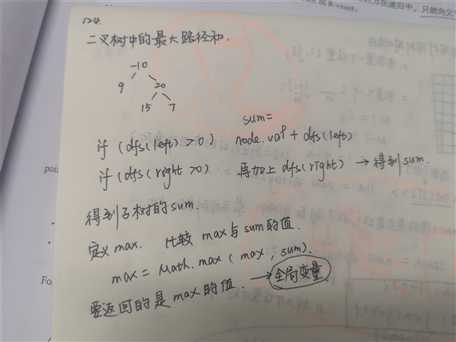 124
二叉树中的最大路径和.
-10
9 20
15 7
sum=
if (dfs(left) >0) node.val + dfs(left)
if (dfs(right >0) 再加上 dfs(right) → 得到 sum.
得到子树的sum.
定义max. 比较 max 与 sum 的值.
max = Math.max (max, sum).
要返回的是 max 的值. → 全局变量